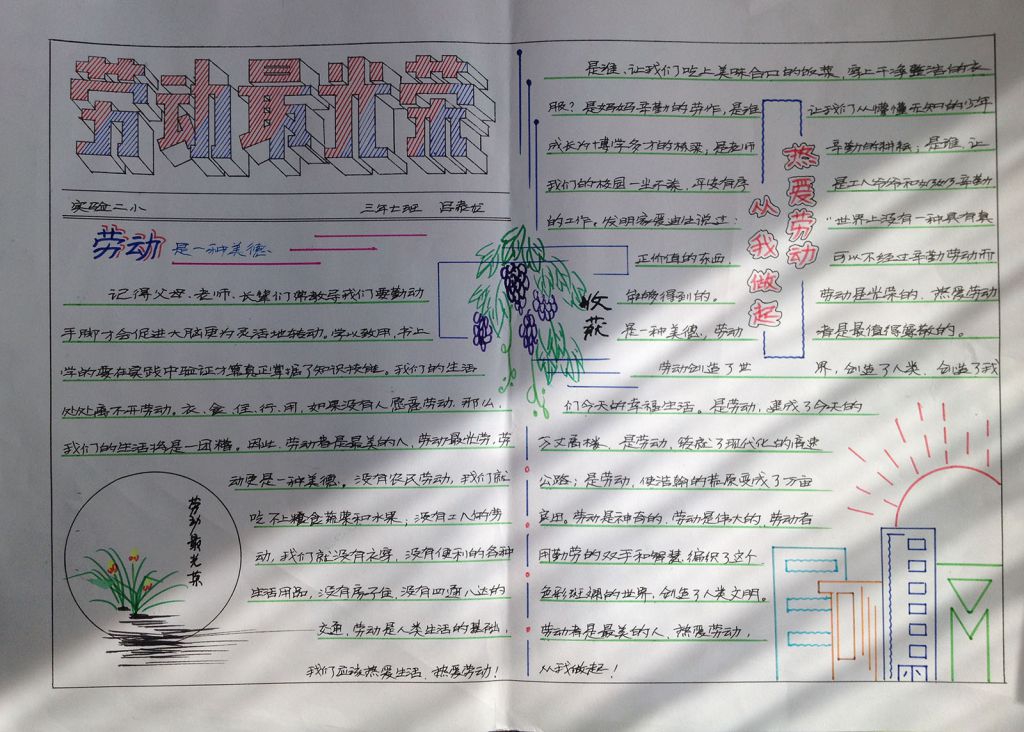 劳动最光荣
实验二小 三年七班 吕
劳动 是一种美德
记得父母、老师、长辈们常教导我们要勤动
手脚才会促进大脑更为灵活地转动。学以致用,书上
学的要在实践中验证才算真正掌握了知识技能。我们的生活
处处离不开劳动。衣、食、住、行、用,如果没有人愿意劳动,那么,
我们的生活将是一团糟。因此,劳动者是最美的人,劳动最光荣,劳
动更是一种美德。没有农民劳动,我们就
吃不上粮食蔬菜和水果;没有工人的劳
动,我们就没有衣穿,没有便利的各种
生活用品,没有房子住,没有四通八达的
交通,劳动是人类生活的基础,
我们应该热爱生活、热爱劳动!
劳动最光荣
收获
是谁、让我们吃上美味合口的饭菜,穿上干净整洁的衣
服?是妈妈辛勤的劳作,是谁 让我们从懵懂无知的少年
成长为博学多才的栋梁,是老师 辛勤的耕耘;是谁、让
我们的校园一尘不染,平安有序 是工人爷爷和叔叔辛勤
的工作。发明家爱迪生说过: “世界上没有一种具有真
正价值的东西, 可以不经过辛勤劳动而
能够得到的。 劳动是光荣的,热爱劳动
是一种美德,劳动 者是最值得尊敬的。
劳动创造了世 界,创造了人类,创造了我
们今天的幸福生活。是劳动,建成了今天的
万丈高楼、是劳动,筑就了现代化的高速
公路;是劳动,使浩翰的荒原变成了万亩
良田。劳动是神奇的,劳动是伟大的,劳动者
用勤劳的双手和智慧,编织了这个
色彩斑斓的世界,创造了人类文明。
劳动者是最美的人、热爱劳动,
从我做起!
热爱劳动
从我做起